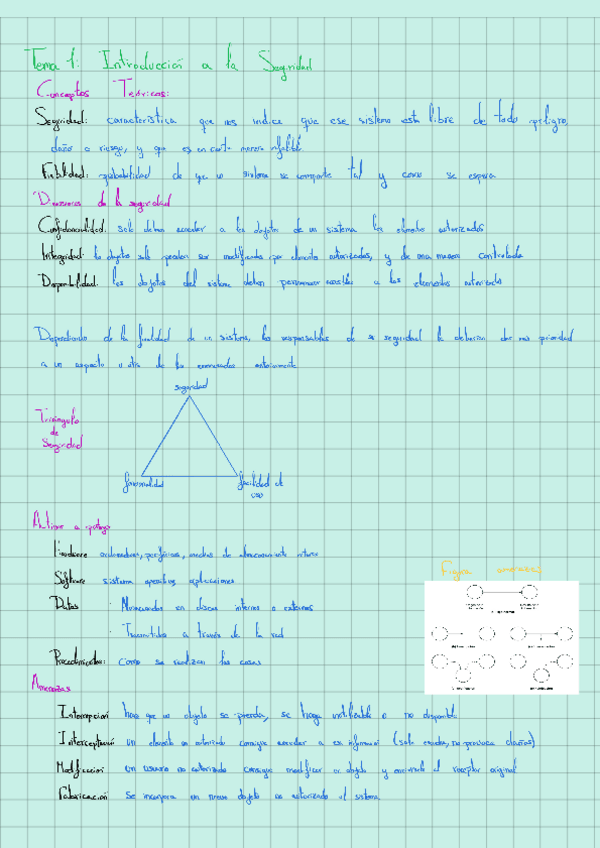 Tema 1: Introducción a la Seguridad
Conceptos Teóricos:
Seguridad: característica que nos indica que ese sistema está libre de todo peligro,
daño o riesgo, y que es en cierta manera infalible
Fiabilidad: probabilidad de que un sistema se comporte tal y como se espera
Dimensiones de la seguridad
Confidencialidad: solo deben acceder a los objetos de un sistema los elementos autorizados
Integridad: los objetos solo pueden ser modificados por elementos autorizados, y de una manera controlada
Disponibilidad: los objetos del sistema deben permanecer accesibles a los elementos autorizados
Dependiendo de la finalidad de un sistema, los responsables de su seguridad le deberían dar más prioridad
a un aspecto u otro de los enumerados anteriormente
seguridad
Triángulo
de
Seguridad
funcionalidad
facilidad de
uso
Activos a proteger
Hardware ordenadores, periféricos, medios de almacenamiento
Software sistema operativo, aplicaciones
Figura amenazas
Datos · Almacenados en discos internos o externos
· Transmitidos a través de la red
Procedimientos: como se realizan las cosas
Amenazas
Interrupción hace que un objeto se pierda, se haga inutilizable o no disponible
Interceptación un elemento no autorizado consigue acceder a esa información (solo escucha, no produce daños)
Modificación un usuario no autorizado consigue modificar un objeto y enviárselo al receptor original
Fabricación se incorpora un nuevo objeto no autorizado al sistema